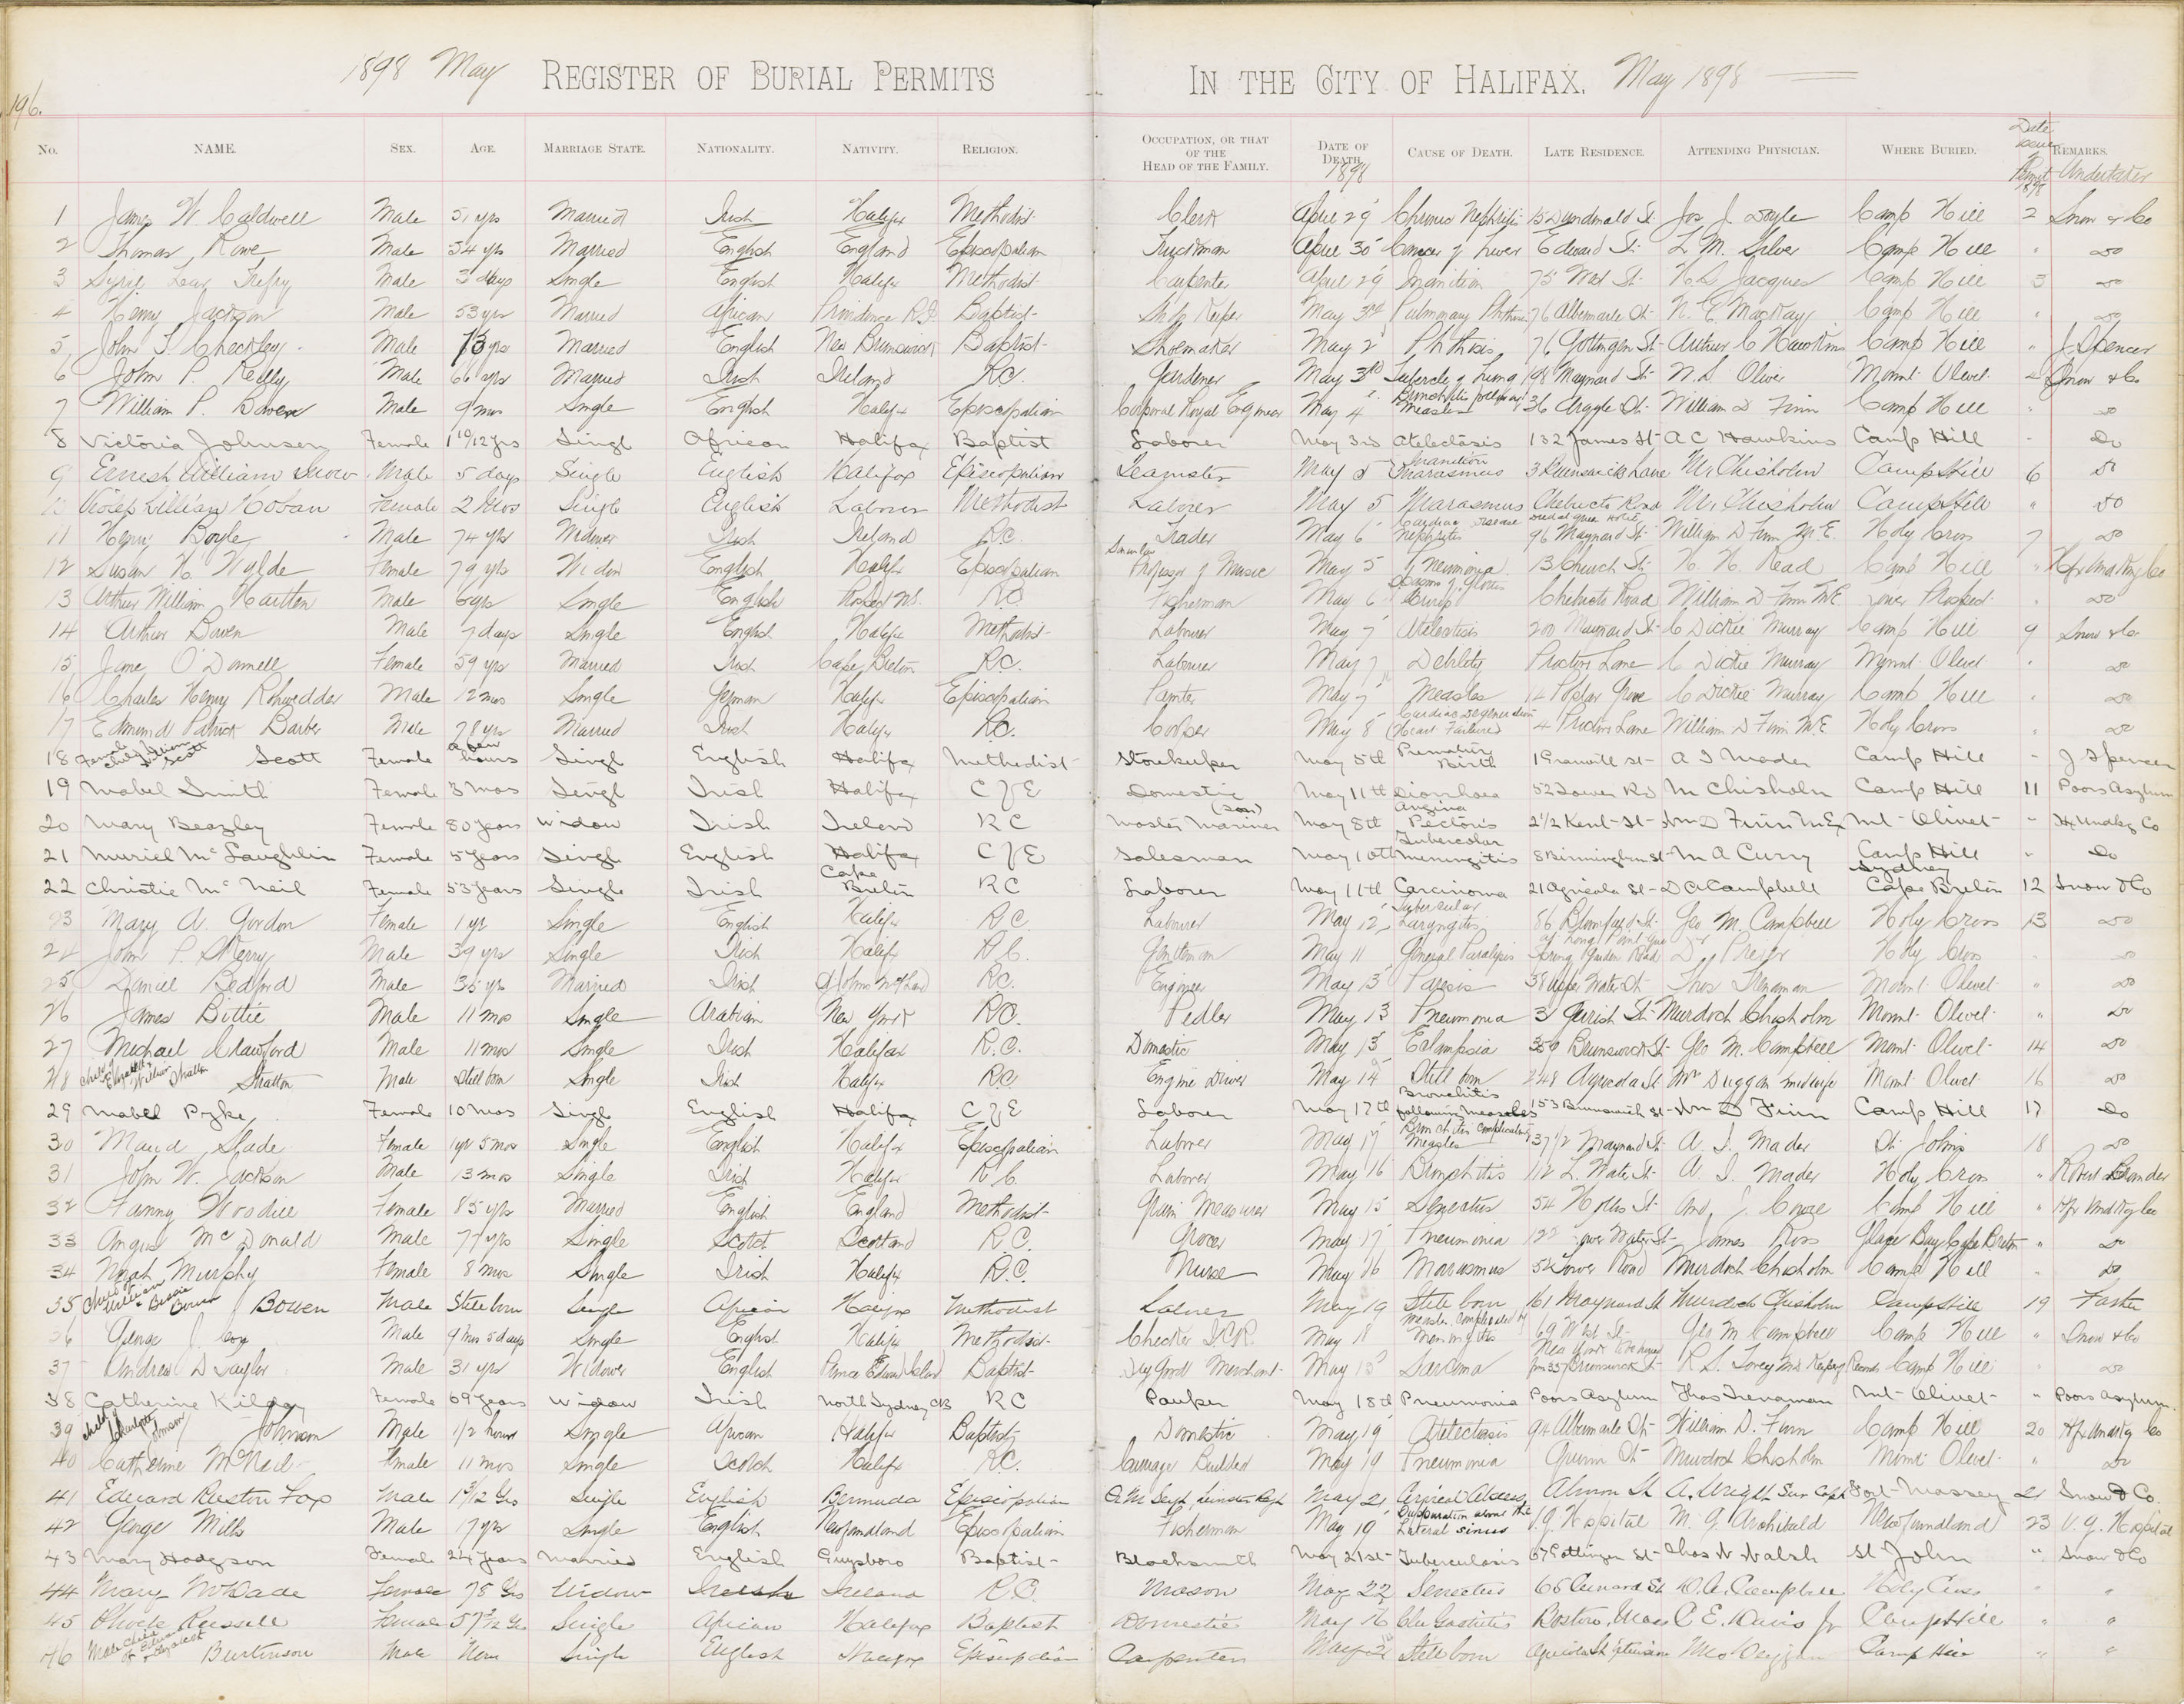 196.
1898 May REGISTER OF BURIAL PERMITS IN THE CITY OF HALIFAX. May 1898
No. NAME. SEX. AGE. MARRIAGE STATE. NATIONALITY. NATIVITY. RELIGION. OCCUPATION, OR THAT OF THE HEAD OF THE FAMILY. DATE OF DEATH. 1898 CAUSE OF DEATH. LATE RESIDENCE. ATTENDING PHYSICIAN. WHERE BURIED. Date Permit 1898 REMARKS. Undertaker
1 James W. Caldwell Male 51 yrs Married Irish Halifax Methodist Clerk April 29 Chronic Nephritis 15 St Jos J. Doyle Camp Hill 2 Snow & Co
2 Thomas Rowe Male 54 yrs Married English England Episcopalian Truckman April 30 Cancer of Liver Edward St L. M. Silver Camp Hill " do
3 Male 3 days Single English Halifax Methodist Carpenter April 29 Inanition 75 West St H. S. Jacques Camp Hill 3 do
4 Henry Jackson Male 53 yrs Married African Providence R.I. Baptist Shop Keeper May 3rd Pulmonary Phthisis 76 Albemarle St N. E. MacKay Camp Hill " do
5 John T. Checkley Male 73 yrs Married English New Brunswick Baptist Shoemaker May 2 Phthisis 76 Gottingen St Arthur C Hawkins Camp Hill " J. Spencer
6 John P. Reilly Male 66 yrs Married Irish Ireland R.C. Gardener May 3rd Tubercle of Lung 198 Maynard St N. S. Oliver Mount Olivet 4 Snow & Co
7 William P. Bowen Male 9 mos Single English Halifax Episcopalian Corporal Royal Engineer May 4 Bronchitis following Measles 36 Argyle St William D Finn Camp Hill " do
8 Victoria Johnson Female 1 10/12 yrs Singl African Halifax Baptist Laborer May 3rd Atelectasis 132 James St A C Hawkins Camp Hill " Do
9 Ernest William Snow Male 5 days Single English Halifax Episcopalian Teamster May 5 Inanition Marasmus 3 Brunswick Lane M. Chisholm Camp Hill 6 do
10 Violet Lillian Hoban Female 2 Mos Single English Laborer Methodist Laborer May 5 Marasmus Chebucto Road M. Chisholm Camp Hill " do
11 Henry Boyle Male 74 yrs Widower Irish Ireland R.C. Trader May 6 Cardiac disease Nephritis 96 Maynard St William D Finn M.E. Holy Cross 7 do
12 Susan H. Wylde Female 79 yrs Widow English Halifax Episcopalian Professor of Music May 5 Pneumonia 13 Church St H. H. Read Camp Hill " Hfx Undtkg Co
13 Arthur William Male 6 yrs Single English Prospect N.S. R.C. Fisherman May 6 Spasm of Glottis Croup Chebucto Road William D Finn M.E. Lower Prospect " do
14 Arthur Bowen Male 7 days Single English Halifax Methodist Labourer May 7 Atelectasis 200 Maynard St C Dickie Murray Camp Hill 9 Snow & Co
15 Jane O'Donnell Female 59 yrs Married Irish Cape Breton R.C. Labourer May 7 Debility Proctors Lane C Dickie Murray Mount Olivet " do
16 Charles Henry Rohwedder Male 12 mos Single German Halifax Episcopalian Painter May 7 Measles 14 Poplar Grove C Dickie Murray Camp Hill " do
17 Edmund Patrick Barber Male 78 yrs Married Irish Halifax R.C. Cooper May 8 Cardiac Degeneration (Heart Failure) 4 Proctors Lane William D Finn M.E. Holy Cross " do
18 Female child of Scott Scott Female a few hours Singl English Halifax Methodist Storekeeper May 5th Premature Birth 1 Granville St A I Mader Camp Hill " J Spencer
19 Mabel Smith Female 3 mos Singl Irish Halifax C of E Domestic May 11th Diarrhoea 52 Tower Rd M Chisholm Camp Hill 11 Poors Asylum
20 Mary Beazley Female 80 years Widow Irish Ireland R C Master Mariner (son) May 8th Angina Pectoris 2 1/2 Kent St Wm D Finn M E Mt Olivet " Hx Undtkg Co
21 Muriel McLaughlin Female 5 years Singl English Halifax C of E Salesman May 10th Tubercular Meningitis 8 Birmingham St M A Curry Camp Hill " Do
22 Christie McNeil Female 53 years Single Irish Cape Breton R C Laborer May 11th Carcinoma 21 Agricola St D A Campbell Sydney Cape Breton 12 Snow & Co
23 Mary A. Gordon Female 1 yr Single English Halifax R.C. Labourer May 12 Tubercular Laryngitis 86 Blowers St Geo M. Campbell Holy Cross 13 do
24 John P. Male 39 yrs Single Irish Halifax R.C. Gentleman May 11 General Paralysis Spring Garden Road Dr Holy Cross " do
25 Daniel Bedford Male 35 yrs Married Irish St Johns Nfland R.C. Engineer May 13 Paresis 38 Upper Water St Thos Trenaman Mount Olivet " do
26 James Bittie Male 11 mos Single Arabian New York R.C. Pedler May 13 Pneumonia 31 Gerrish St Murdoch Chisholm Mount Olivet " do
27 Michael Crawford Male 11 mos Single Irish Halifax R.C. Domestic May 13 Eclampsia 359 Brunswick St Geo M. Campbell Mount Olivet 14 do
28 child Elizabeth William Stratton Stratton Male Still born Single Irish Halifax R.C. Engine Driver May 14 Still born 248 Agricola St Mrs Duggan midwife Mount Olivet 16 do
29 Mabel Pyke Female 10 mos Singl English Halifax C of E Laborer May 17th Bronchitis following Measles 153 Brunswick St Wm D Finn Camp Hill 17 Do
30 Maud Slade Female 1 yr 5 mos Single English Halifax Episcopalian Laborer May 17 Bronchitis complicating Measles 37 1/2 Maynard St A. I. Mader St Johns 18 do
31 John W. Jackson Male 13 mos Single Irish Halifax R.C. Laborer May 16 Bronchitis 112 L. Water St A. I. Mader Holy Cross "
32 Fanny Woodill Female 85 yrs Married English England Methodist Grain Measurer May 15 Senectus 54 Hollis St And. J. Cowie Camp Hill " Hfx Undtkg Co
33 Angus McDonald Male 77 yrs Single Scotch Scotland R.C. Grocer May 17 Pneumonia Lower Water St James Ross Glace Bay Cape Breton " do
34 Norah Murphy Female 8 mos Single Irish Halifax R.C. Nurse May 16 Marasmus 54 Tower Road Murdoch Chisholm Camp Hill " do
35 child of William & Bessie Bowen Bowen Male Still born Single African Halifax Methodist Laborer May 19 Still born 161 Maynard St Murdoch Chisholm Camp Hill 19 Father
36 George J. Male 9 mos 5 days Single English Halifax Methodist Checker I.C.R. May 18 Measles complicated by Meningitis 69 West St Geo M Campbell Camp Hill " Snow & Co
37 Andrew D Taylor Male 31 yrs Widower English Prince Edward Island Baptist Dry Good Merchant May 15 Sarcoma Brunswick St Camp Hill " do
38 Catherine Kilday Female 69 years Widow Irish North Sydney CB R C Pauper May 18th Pneumonia Poors Asylum Thos Trenaman Mt Olivet " Poors Asylum
39 child of Charlotte Johnson Johnson Male 1/2 hour Single African Halifax Baptist Domestic May 19 Atelectasis 94 Albemarle St William D. Finn Camp Hill 20 Hfx Undtkg Co
40 Catherine McNeil Female 11 mos Single Scotch Halifax R.C. Carriage Builder May 19 Pneumonia Queen St Murdoch Chisholm Mount Olivet " do
41 Edward Ruston Fox Male 1 5/12 yrs Single English Bermuda Episcopalian Q.M. Sergt Leinster Regt May 21 Almon St A. Wright Sur Capt Fort Massey 21 Snow & Co.
42 George Mills Male 17 yrs Single English Newfoundland Episcopalian Fisherman May 19 Suppuration about the Lateral sinus V.G. Hospital M. G. Archibald Newfoundland 23 V. G. Hospital
43 Mary Hodgson Female 24 years Married English Guysboro Baptist Blacksmith May 21st Tuberculosis 67 Gottingen St Thos W Walsh St John " Snow & Co
44 Mary McDade Female 75 yrs Widow Ireland R.C. Mason May 22 Senectus 65 Cunard St D. A. Campbell Holy Cross " "
45 Russell Female Single African Halifax Baptist Domestic May 16 Gastritis Boston, Mass C. E. Davis Jr Camp Hill " "
46 Male child of Edward & Elizabeth Burtinson Male New Single English Halifax Episcopalian Carpenter May 21 Still born Agricola St Mrs Duggan Camp Hill " "